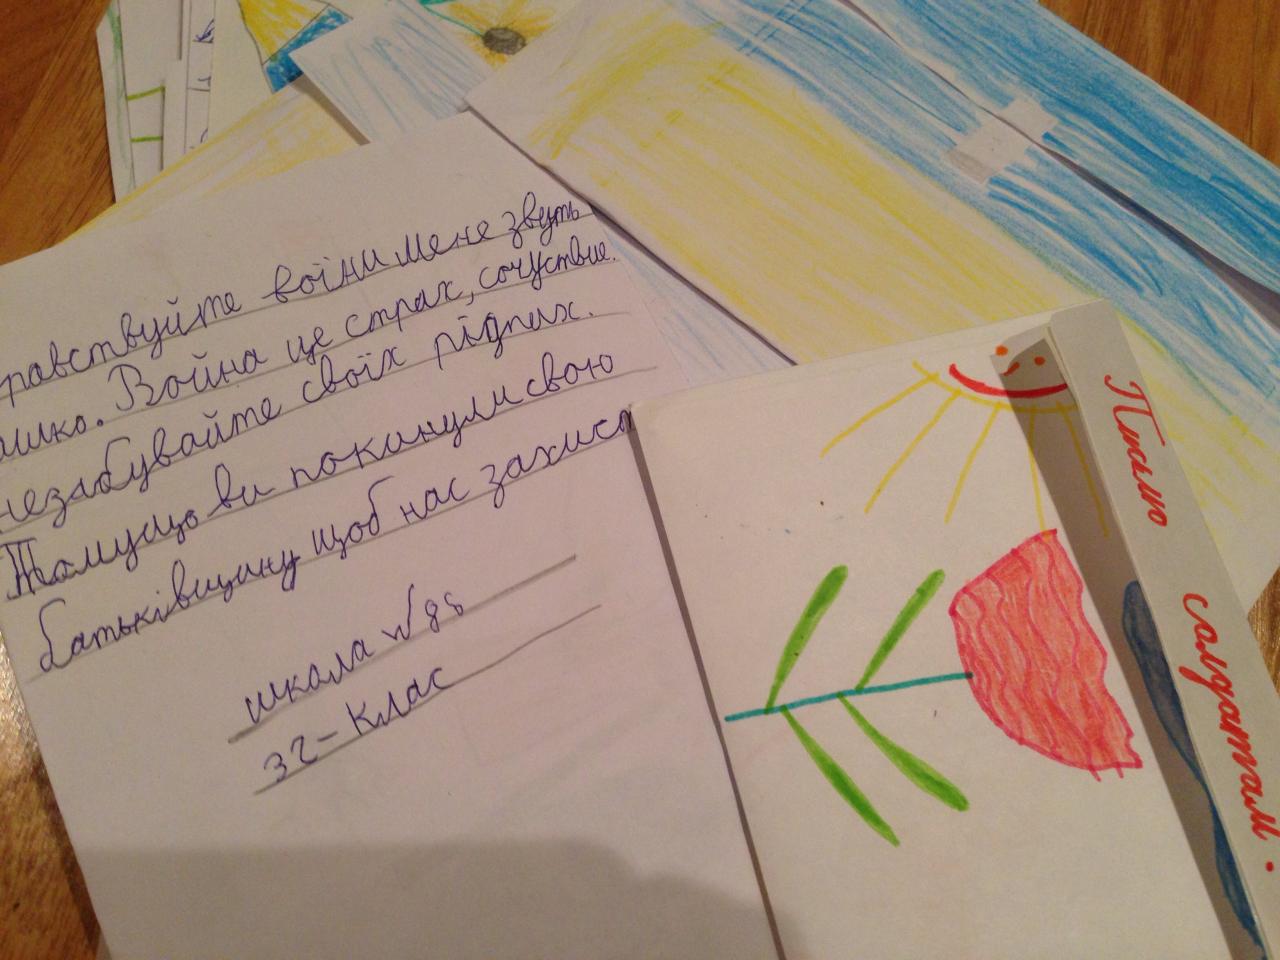 равствуйте воїни мене звуть
ашко. Война це страх, сочуствие.
незабувайте своїх рідних.
Тамущо ви покинули свою
батьківщину щоб нас захист
школа №98
3г-Клас
Письмо солдатам.